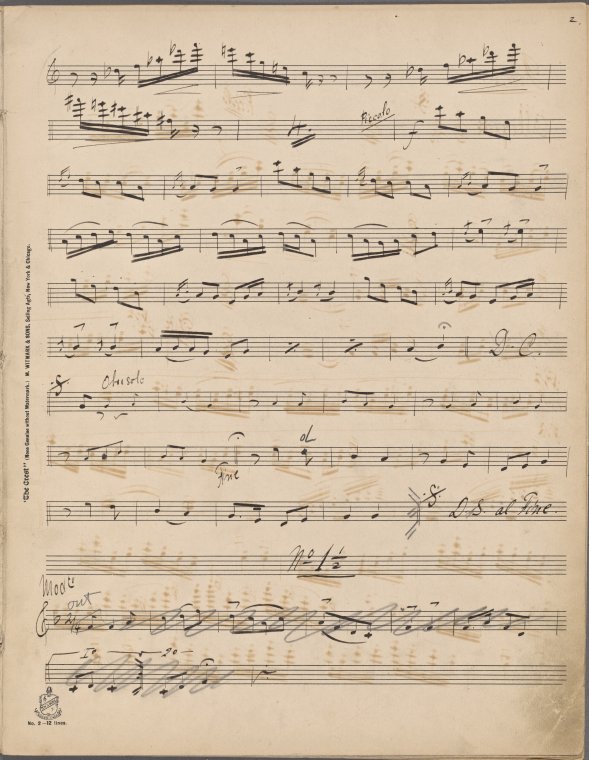 2.
Piccolo
f
D-C.
Oboe solo
Fine
D.S. al Fine.
No 1 1/2
Modto
out
2/4
1o 2o
"The Crest" (None Genuine without Watermark.) M. WITMARK & SONS, Selling Agts, New York & Chicago.
No. 2 – 12 lines.